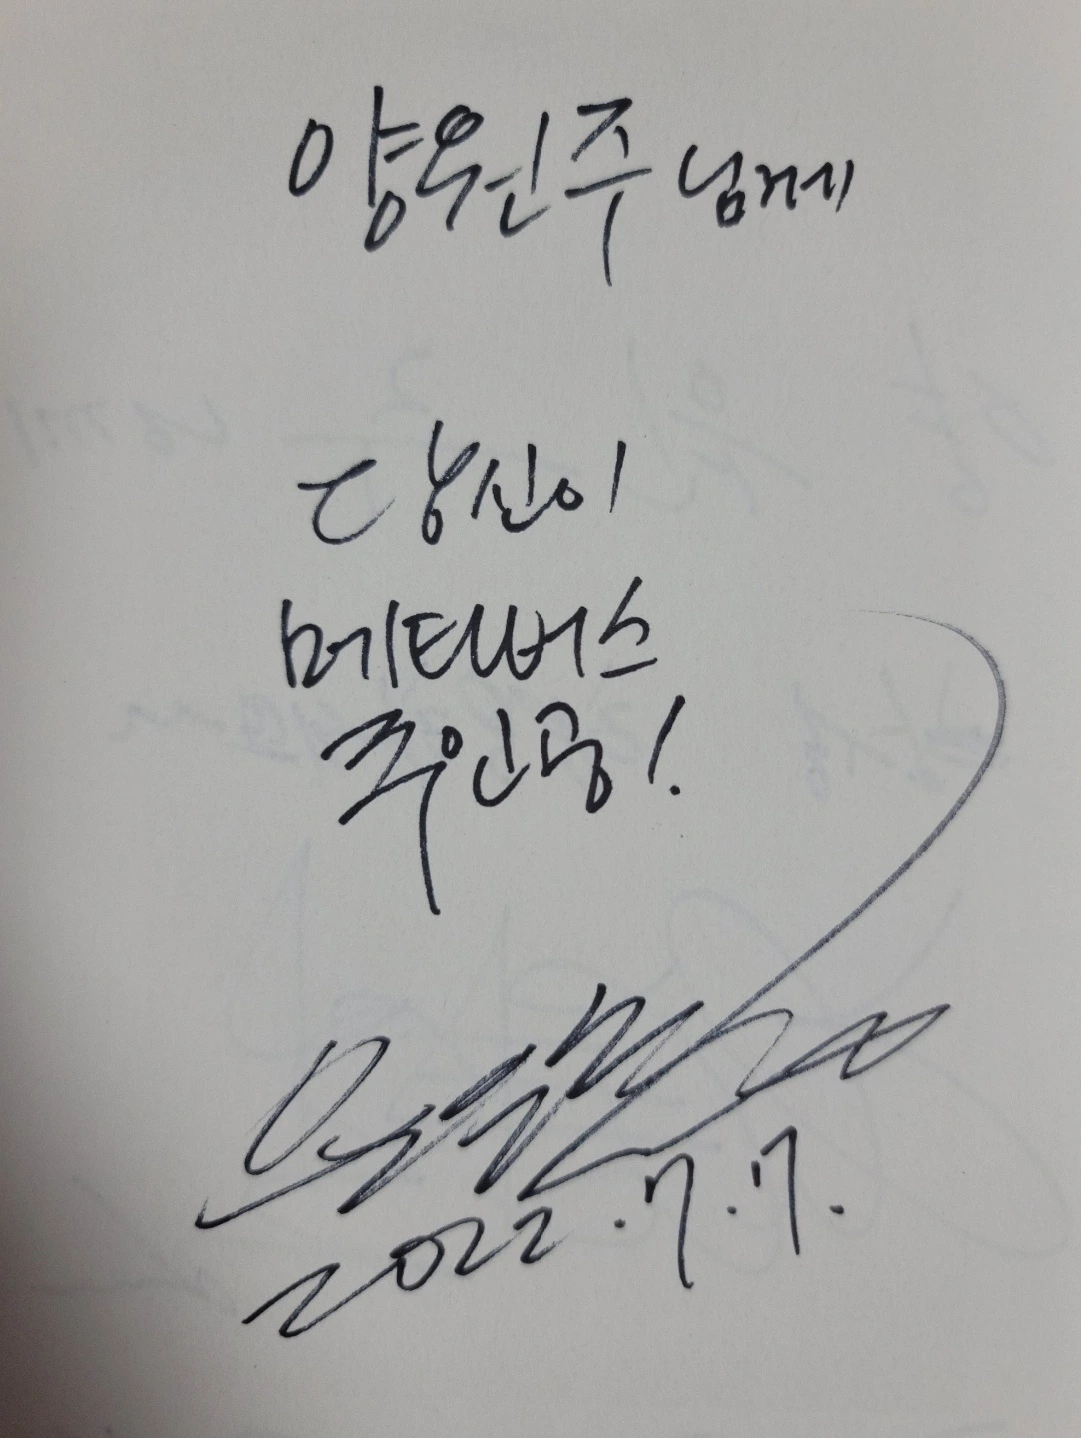 양원주 님께
당신이
메타버스
주인공!
2022.7.7.